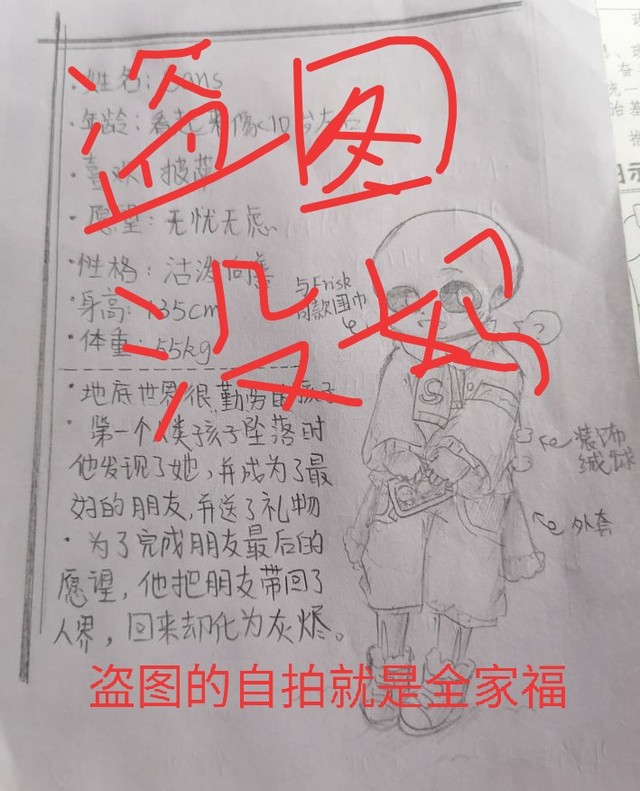 ·姓名:Sans
·年龄:看起来像10岁左右
·喜欢:披萨
·愿望:无忧无虑
·性格:活泼向善
·身高:135cm
·体重:55kg
·地底世界很勤劳的孩子
·第一个人类孩子坠落时
他发现了她,并成为了最
好的朋友,并送了礼物
·为了完成朋友最后的
愿望,他把朋友带回了
人界,回来却化为灰烬。
与Frisk
同款围巾
S
装饰
绒球
外套
盗图
没妈
盗图的自拍就是全家福